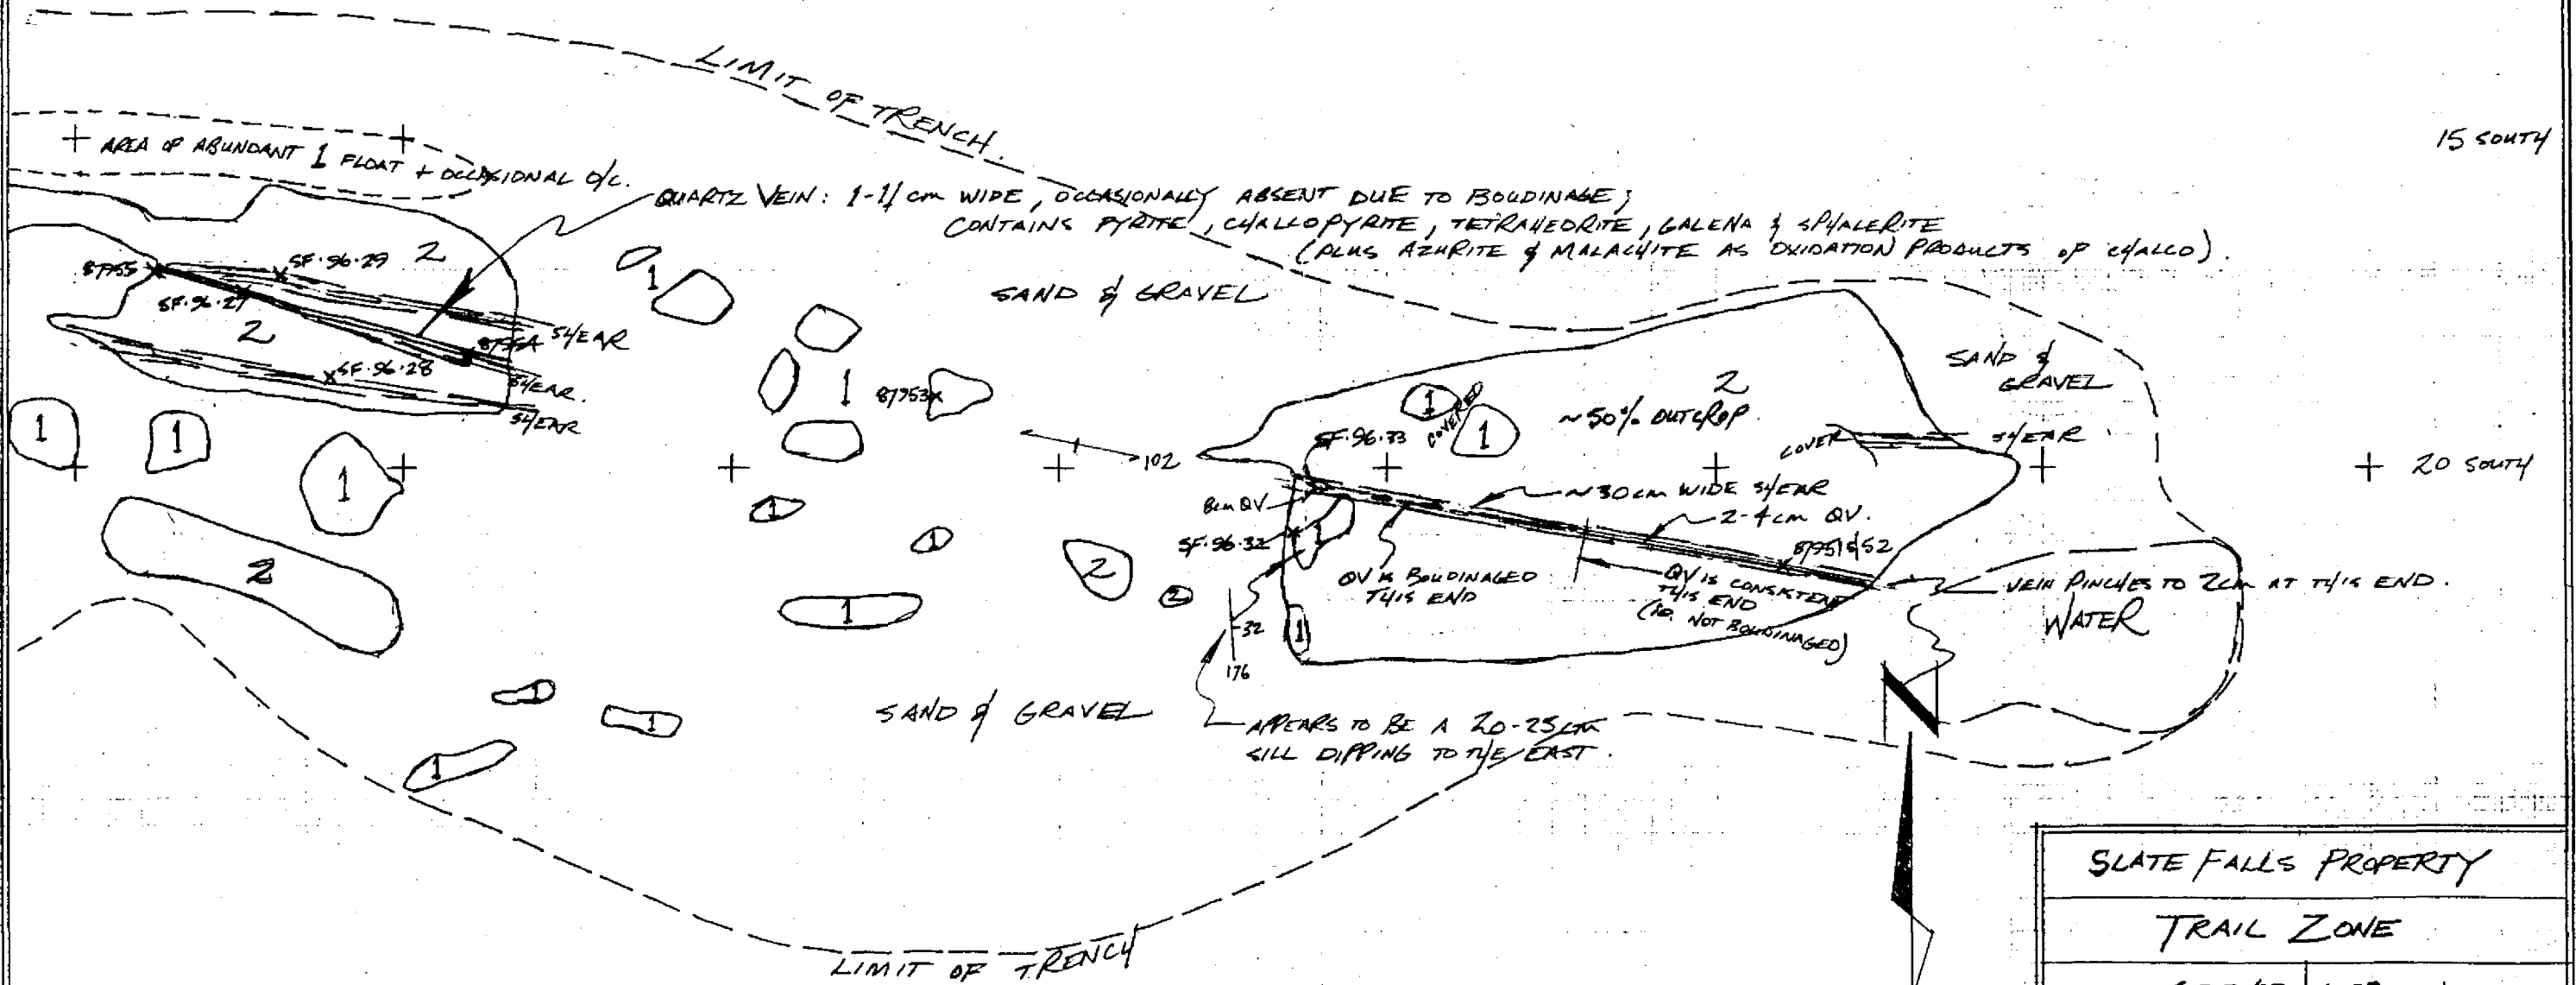 LIMIT OF TRENCH.
15 SOUTH
AREA OF ABUNDANT 1 FLOAT + OCCASIONAL O/C.
QUARTZ VEIN: 1-11 cm WIDE, OCCASIONALLY ABSENT DUE TO BOUDINAGE;
CONTAINS PYRITE, CHALCOPYRITE, TETRAHEDRITE, GALENA & SPHALERITE
(PLUS AZURITE & MALACHITE AS OXIDATION PRODUCTS OF CHALCO).
87955
SF-96-29
2
SF-96-27
2
SHEAR
SHEAR.
SHEAR
SF-96-28
1
1
1
2
1
1
87953
SAND & GRAVEL
102
SAND &
GRAVEL
2
~50% OUTCROP.
1
COVERED
1
SF-96-33
COVER
SHEAR
20 SOUTH
8cm QV
~30cm WIDE SHEAR
2-4cm QV.
SF-96-32
1
87951&52
QV IS BOUDINAGED
THIS END
QV IS CONSISTENT
THIS END
(IE. NOT BOUDINAGED)
VEIN PINCHES TO 2cm AT THIS END.
WATER
1
1
2
2
1
32
176
1
1
1
1
SAND & GRAVEL
APPEARS TO BE A 20-25cm
SILL DIPPING TO THE EAST.
N
LIMIT OF TRENCH
SLATE FALLS PROPERTY
TRAIL ZONE